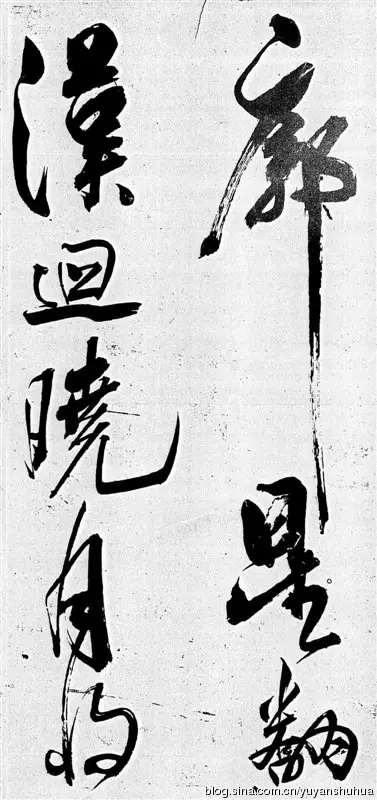 廓星翻
漢迴曉月將
blog.sina.com.cn/yuyanshuhua